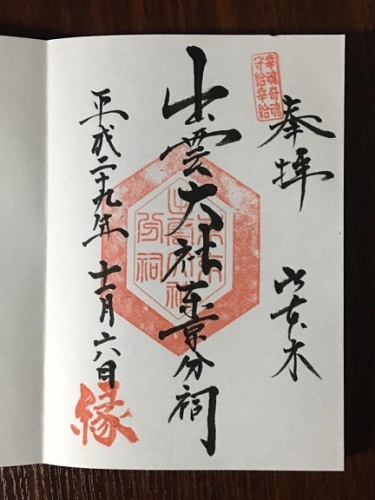 幸魂奇魂
守給幸給
奉拝
六本木
出雲大社東京分祠
平成二十九年十一月六日
縁
分祠